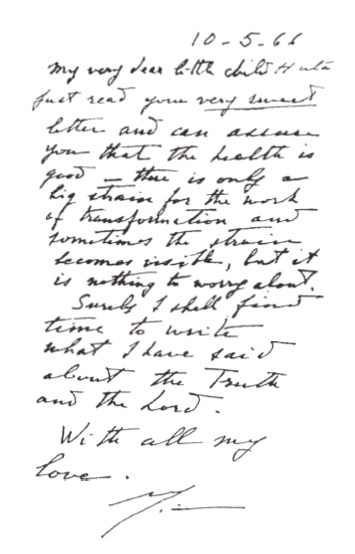 10-5-66
My very dear little child Huta
just read your very sweet
letter and can assure
you that the health is
good — there is only a
big strain for the work
of transformation and
sometimes the strain
becomes visible, but it
is nothing to worry about.
Surely I shall find
time to write
what I have said
about the Truth
and the Lord.
With all my
love.